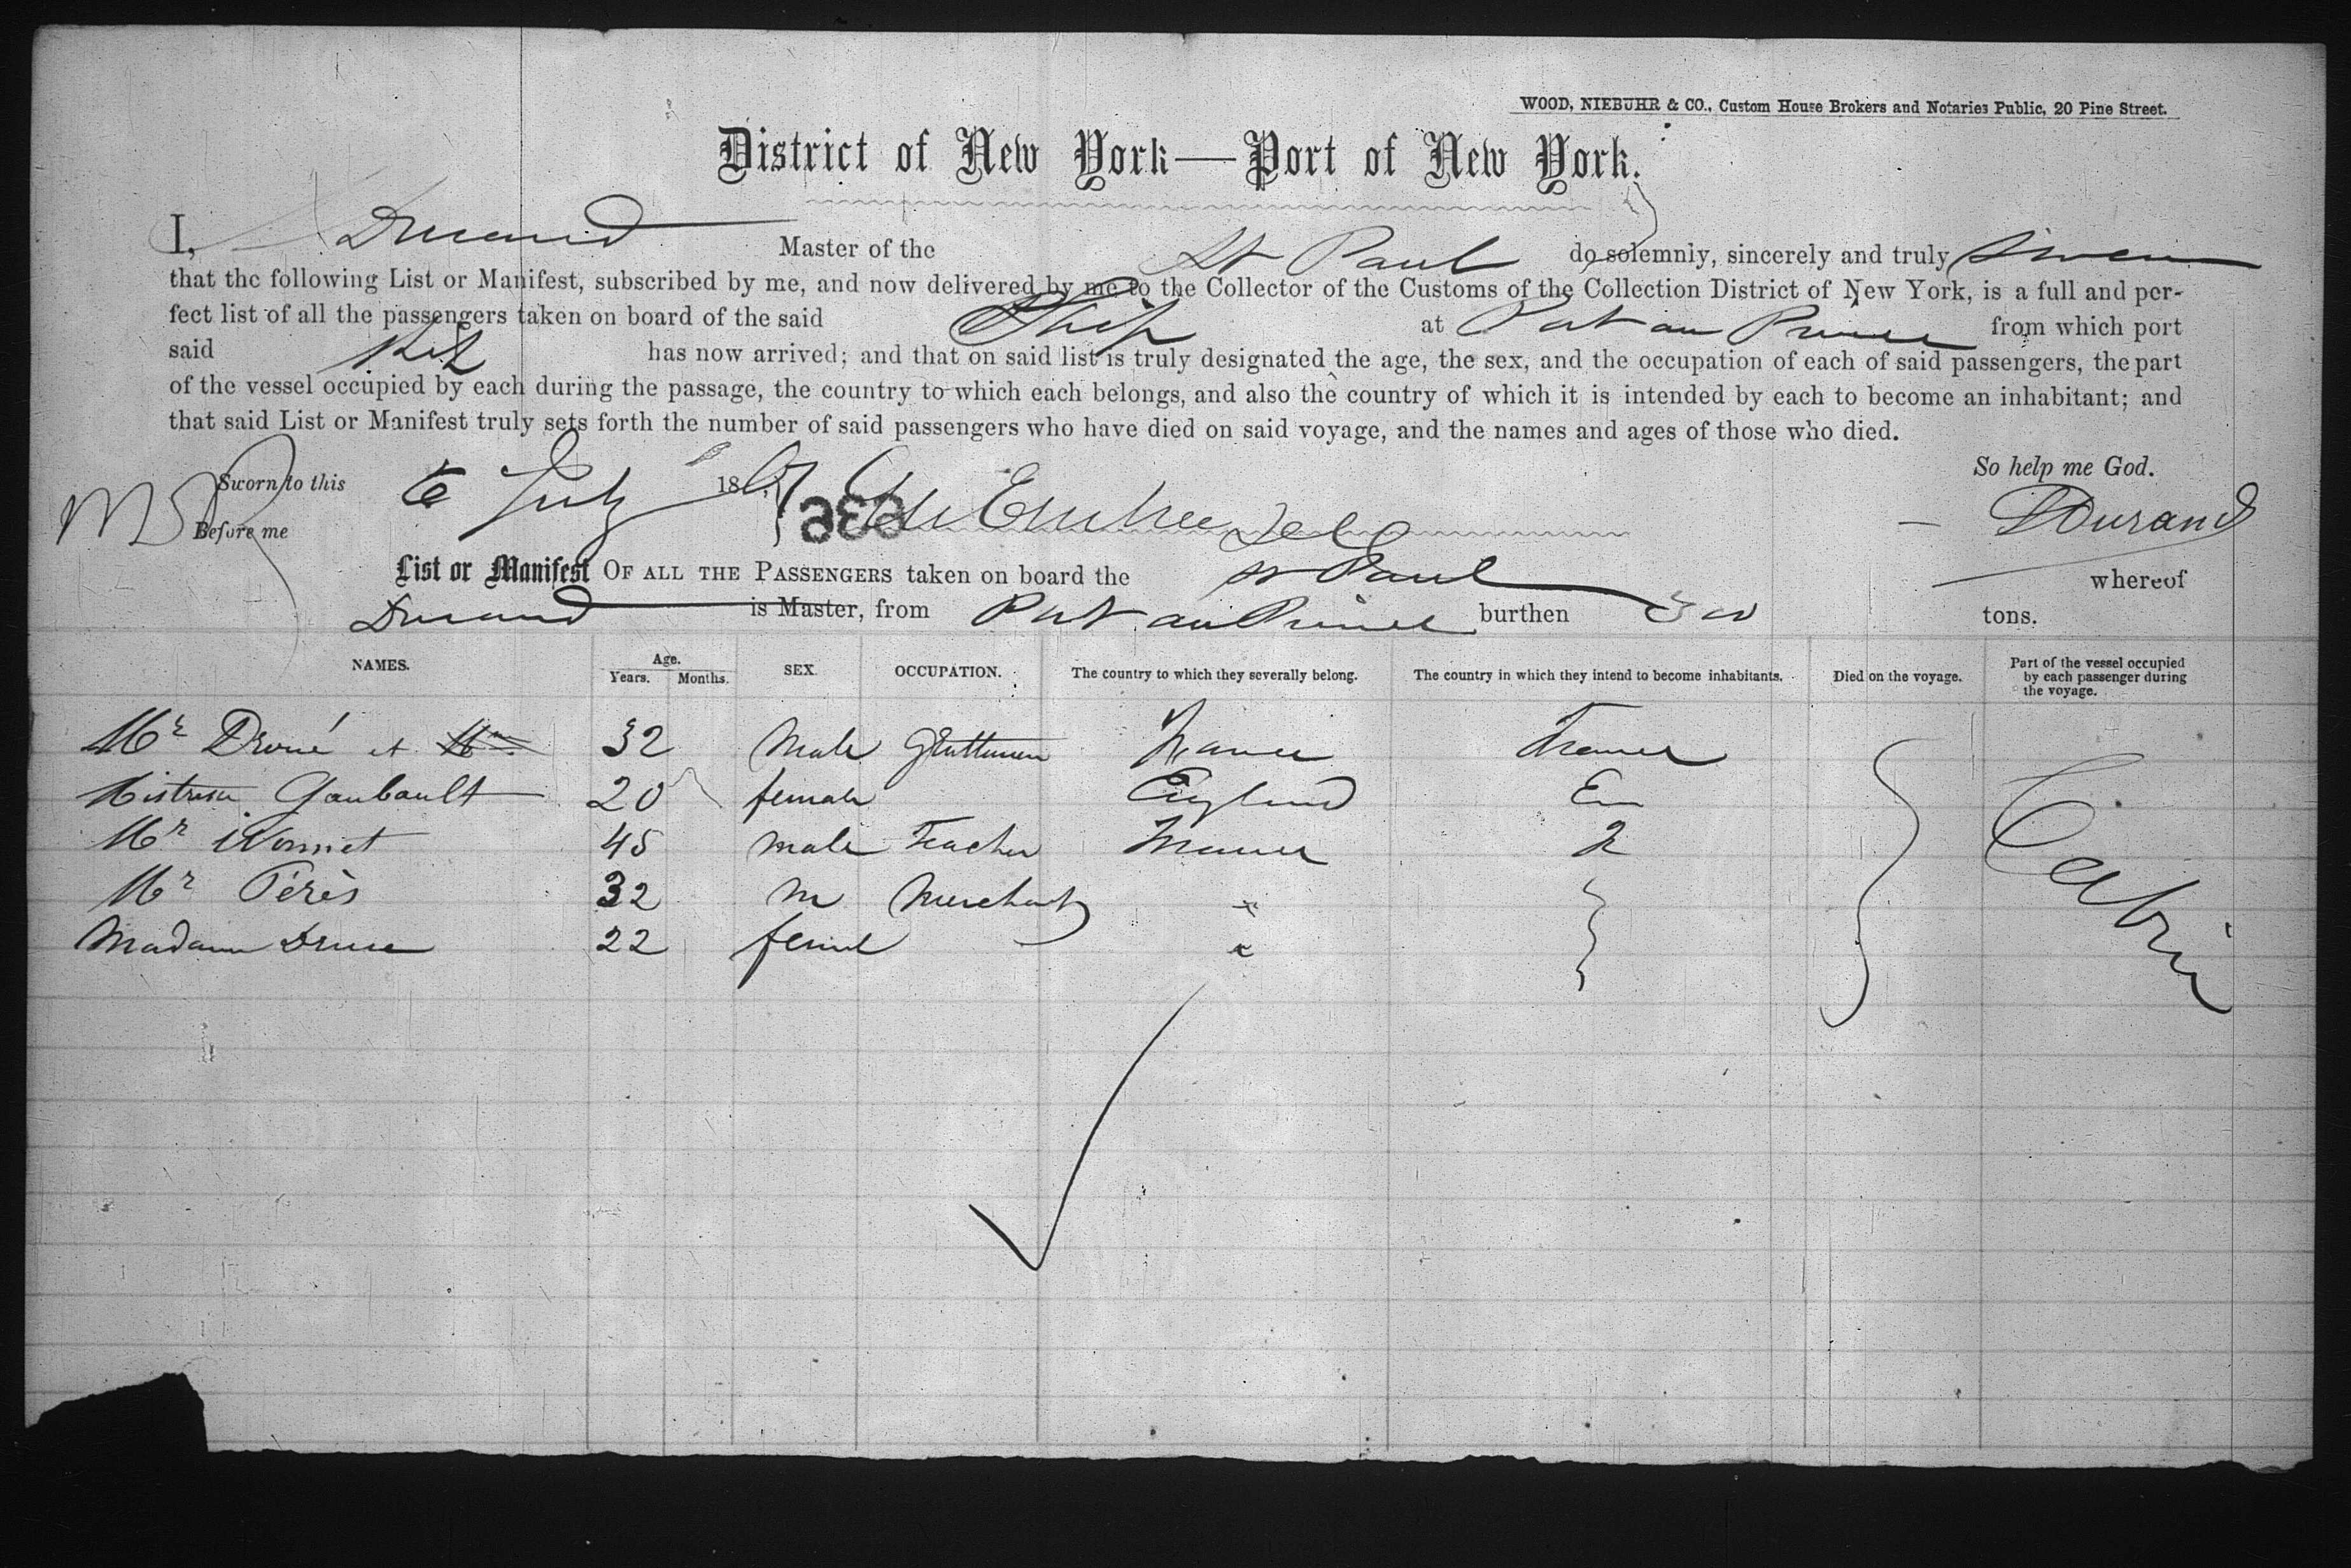 WOOD, NIEBUHR & CO., Custom House Brokers and Notaries Public, 20 Pine Street.
District of New York—Port of New York.
I, Durand Master of the St Paul do solemnly, sincerely and truly swear
that the following List or Manifest, subscribed by me, and now delivered by me to the Collector of the Customs of the Collection District of New York, is a full and per-
fect list of all the passengers taken on board of the said Ship at Port au Prince from which port
said has now arrived; and that on said list is truly designated the age, the sex, and the occupation of each of said passengers, the part
of the vessel occupied by each during the passage, the country to which each belongs, and also the country of which it is intended by each to become an inhabitant; and
that said List or Manifest truly sets forth the number of said passengers who have died on said voyage, and the names and ages of those who died.
So help me God.
Sworn to this 6 July 1867
636
Before me
Durand
List or Manifest OF ALL THE PASSENGERS taken on board the St Paul whereof
Durand is Master, from Port au Prince burthen 300 tons.
NAMES. Age. Years. Months. SEX. OCCUPATION. The country to which they severally belong. The country in which they intend to become inhabitants. Died on the voyage. Part of the vessel occupied by each passenger during the voyage.
Mr Droué et 32 Male Gentleman France France
Mistress Gaubault 20 female England En
Mr 45 male Teacher France
Mr Pérès 32 m Merchant "
Madame 22 femel "
Cabin